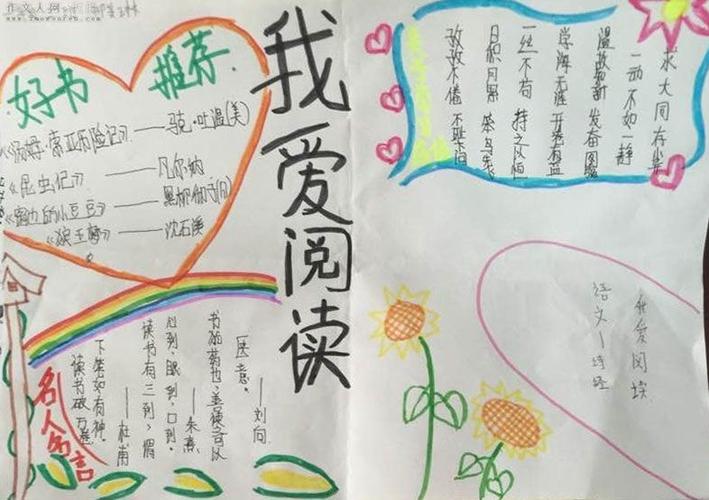 作文人网
好书 推荐
《汤姆·索亚历险记》——·吐温(美)
《昆虫记》——凡尔纳
《窗边的小豆豆》——黑柳彻子(日)
《狼王梦》——沈石溪
我爱阅读
求大同存
一动不如一静
温故知新 发奋图强
学海无涯 开卷有益
一丝不苟 持之以恒
日积月累 笨鸟先飞
孜孜不倦 不耻下问
名人名言
读书破万卷
下笔如有神。
——杜甫
读书有三到,谓
心到,眼到,口到。
——朱熹
书犹药也,善读之可以
医愚。
——刘向
我爱阅读
语文一诗经